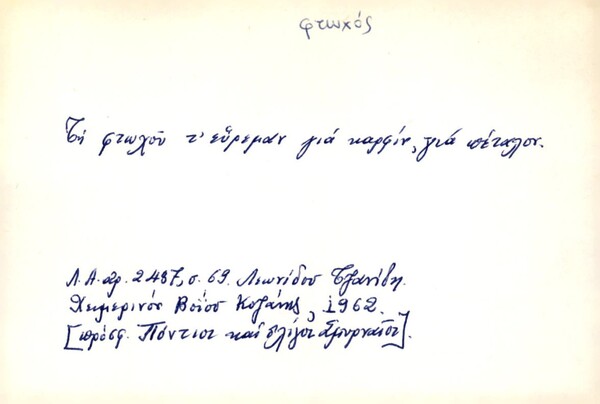 φτωχός
Τή φτωχοῦ τ' εὕρεμαν γιά καρφίν, γιά πέταλον.
Λ.Α. ἀρ. 2487, σ. 69. Λεωνίδου Τζανίδη.
Χειμερινόν Βοΐου Κοζάνης, 1962.
[πρόσφ. Πόντιοι καί ὀλίγοι Σμυρναῖοι].